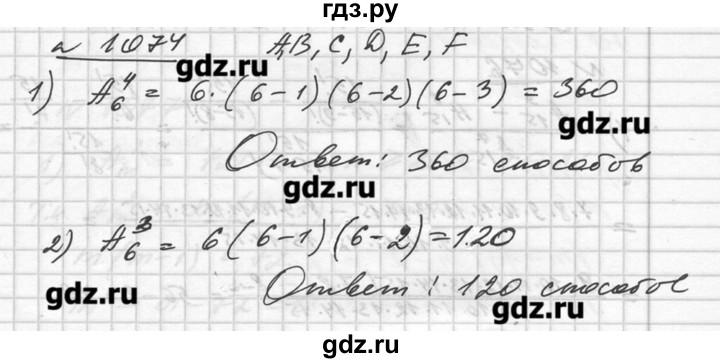 гдз.ру
№ 1074 A, B, C, D, E, F
gdz.ru
1) A₆⁴ = 6·(6-1)(6-2)(6-3) = 360
gdz.ru
Ответ: 360 способов
gdz.ru
2) A₆³ = 6(6-1)(6-2)=120
gdz.ru
Ответ: 120 способов
gdz.ru
gdz.ru